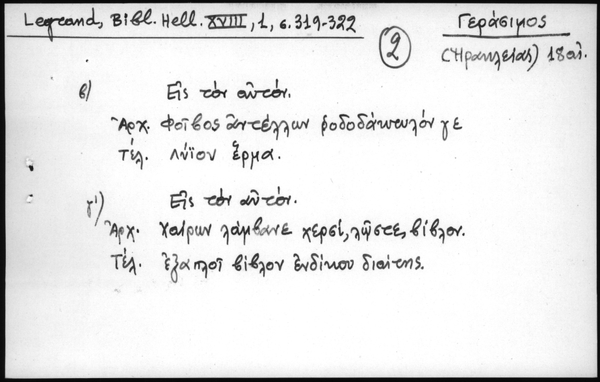 Legrand, Bibl. Hell. XVIII, 1, σ. 319-322
2
Γεράσιμος
(Ἡρακλείας) 18 αἰ.
β) Εἰς τὸν αὐτόν.
Ἀρχ. Φοῖβος ἀντέλλων ῥοδοδάκτυλόν γε
Τέλ. λύϊον ἕρμα.
γ') Εἰς τὸν αὐτόν.
Ἀρχ. Χαίρων λάμβανε χερσί, λῷστε, βίβλον.
Τέλ. ἐξαπλοῖ βίβλον ἐνδίκου διαίτης.